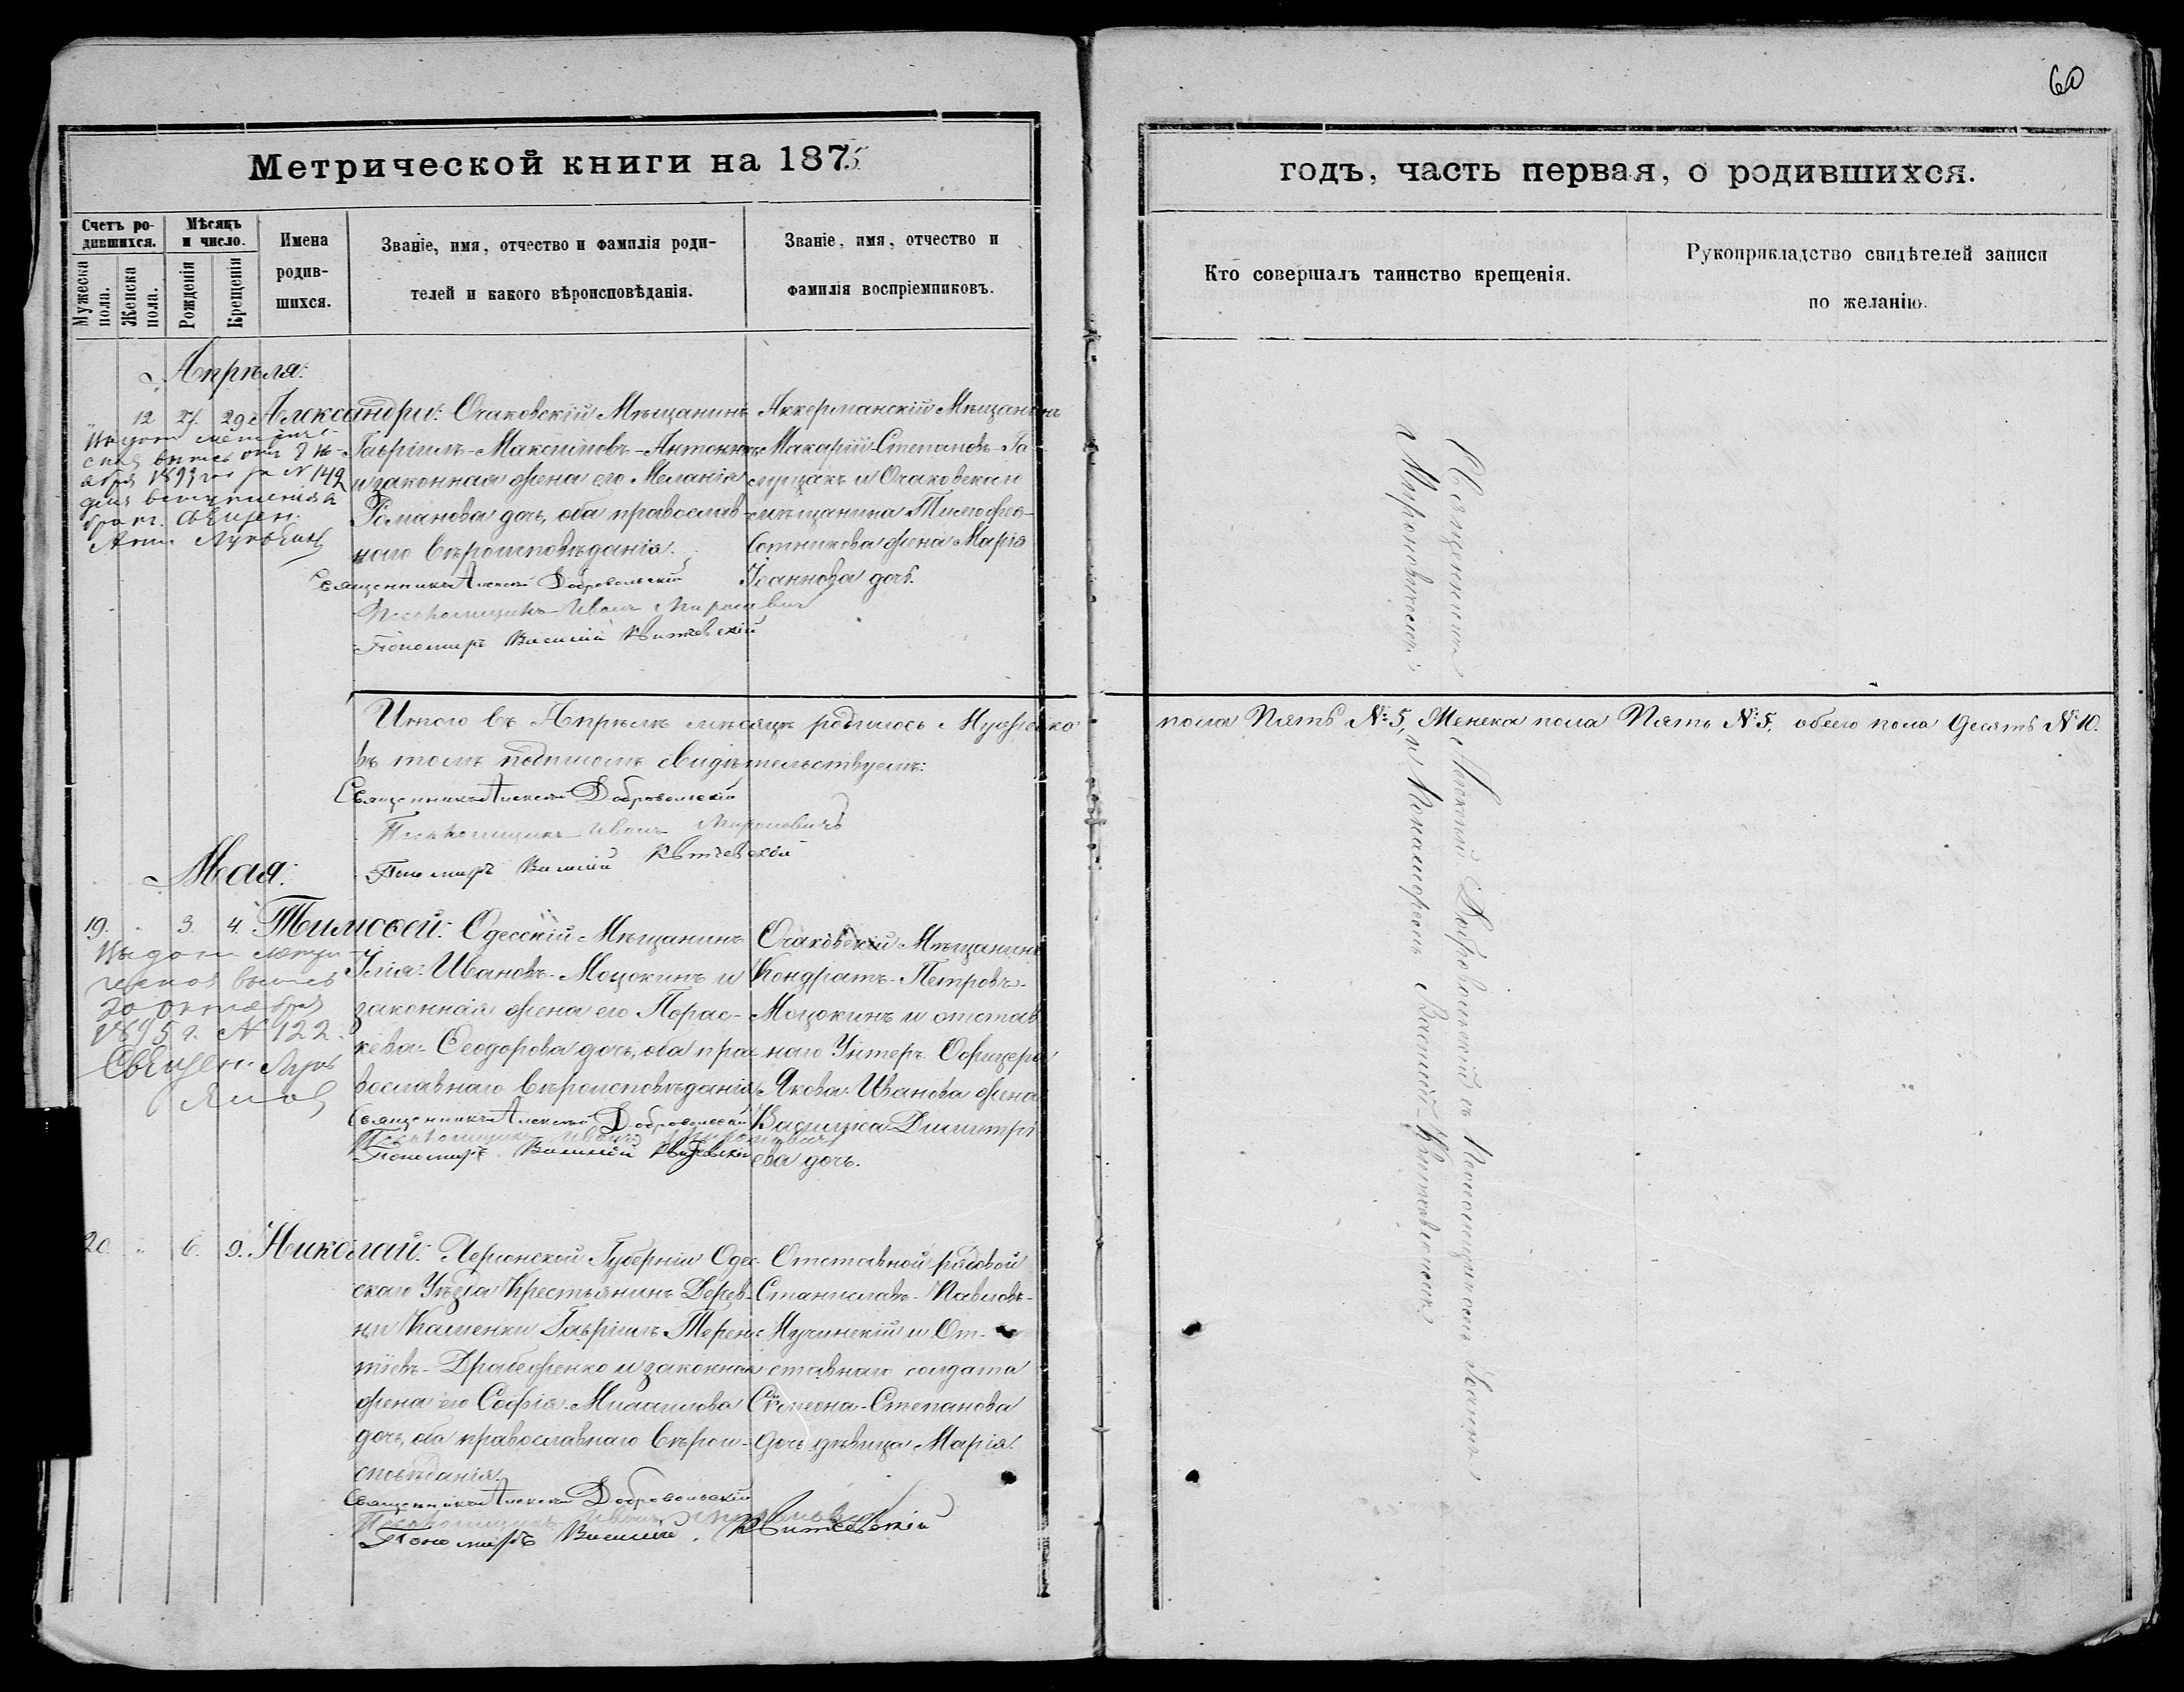 60
Метрической книги на 1875
годъ, часть первая, о родившихся.
Счетъ ро-
дившихся.
Мужеска
пола.
Женска
пола.
Мѣсяцъ
и число.
Рожденія
Крещенія
Имена
родив-
шихся.
Званіе, имя, отчество и фамилія роди-
телей и какого вѣроисповѣданія.
Званіе, имя, отчество и
фамилія воспріемниковъ.
Кто совершалъ таинство крещенія.
Рукоприкладство свидѣтелей записи
по желанію.
Апрѣля:
" 12 27. 29
Александра: Очаковскій Мѣщанинъ
Гавріилъ Максимовъ
и законная жена его Меланія
Романова дочь, оба православ-
наго вѣроисповѣданія.
Священникъ Алексѣй Добровольскій
Псаломщикъ Иванъ Мироновичъ
Пономаръ Василій Квитковскій
Аккерманскій Мѣщанинъ
Макарій Степановъ Га-
и Очаковскаго
мѣщанина Тимофея
Сотникова жена Марія
Іоаннова дочь.
149
для вступленія въ
бракъ. Священ.
Итого въ Апрѣлѣ мѣсяцѣ родилось Мужеска
пола Пять № 5, Женска пола Пять № 5, обоего пола Десять № 10.
въ томъ подписомъ свидѣтельствуемъ:
Священникъ Алексѣй Добровольскій
Псаломщикъ Иванъ Мироновичъ
Пономаръ Василій Квитковскій
Мая:
19. " 3. 4.
Тимоѳей: Одесскій Мѣщанинъ
Илія Ивановъ Моцокинъ и
законная жена его Порас-
кева Ѳеодорова дочь, оба пра-
вославнаго вѣроисповѣданія
Священникъ Алексѣй Добровольскій
Псаломщикъ Иванъ Мироновичъ
Пономаръ Василій Квитковскій
Очаковскій Мѣщанинъ
Кондратъ Петровъ
Моцокинъ и отстав-
наго Унтеръ Офицера
Якова Иванова жена
Василиса Димитрі-
ева дочь.
Выдана метри-
ческая выпись
20 октября
1895 г. № 122.
Священ.
20 " 6. 9.
Николай: Херсонской Губерніи Одес-
скаго Уѣзда Крестьянинъ Дерев-
ни Каменки Гавріилъ Терен-
тіевъ и законная
жена его Софія Михаилова
дочь, оба православнаго вѣрои-
сповѣданія.
Священникъ Алексѣй Добровольскій
Псаломщикъ Иванъ Мироновичъ
Пономаръ Василій Квитковскій
Отставной рядовой
Станиславъ Павловъ
и От-
ставнаго солдата
Симеона Степанова
дочь дѣвица Марія.
Священникъ Алексѣй Добровольскій съ Псаломщикомъ Іоанномъ
Мироновичемъ и Пономоремъ Василій Квитковскимъ